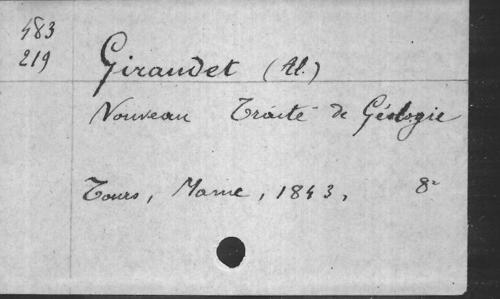 483
219
Giraudet (Al.)
Nouveau Traité de Géologie
Tours, Mame, 1843, 8º